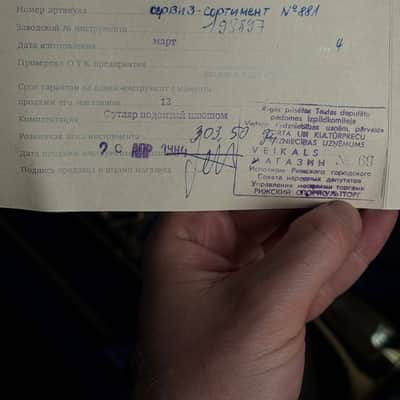 Номер артикула сервиз-сортимент №881
Заводской № инструмента 193897
Дата изготовления март 4
Проверено ОТК предприятия
Срок гарантии на один инструмент с момента
продажи его магазином 13
Комплектация Футляр подонный плюшом
Розничная цена инструмента 303,50
Дата продажи инструмента 20 АПР
Подпись продавца и штамп магазина
Rīgas pilsētas Tautas deputātu
padomes izpildkomiteja
UN KULTŪRPREČU
TIRDZNIECĪBAS UZŅĒMUMS
VEIKALS
МАГАЗИН № 69
Исполком Рижского городского
Совета народных депутатов
Управление торговли
РИЖСКИЙ